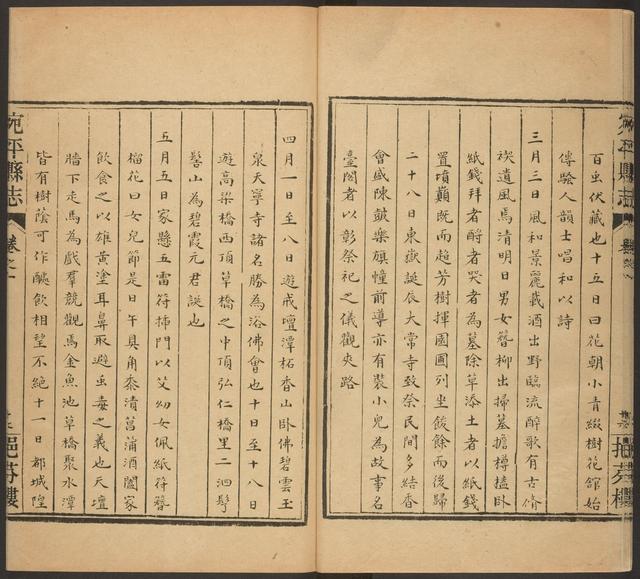 百虫伏藏也十五日曰花朝小青綴樹花信始
傳騷人韻士唱和以詩
三月三日風和景麗載酒出野臨流醉歌有古脩
禊遺風焉清明日男女簪柳出掃墓擔樽榼卧
紙錢拜者酹者哭者為墓除草添土者以紙錢
置墳巔既而趨芳樹擇園圃列坐餕餘而後歸
二十八日東嶽誕辰大常寺致祭民間多結香
會盛陳鼓樂旗幢前導亦有裝小兒為故事名
臺閣者以彰祭祀之儀觀夾路
四月一日至八日遊戒壇潭柘香山卧佛碧雲玉
泉天寧寺諸名勝為浴佛會也十日至十八日
遊高梁橋西頂草橋之中頂弘仁橋里二泗髽
髻山為碧霞元君誕也
五月五日家懸五雷符揷門以艾幼女佩紙符簪
榴花曰女兒節是日午具角黍漬菖蒲酒闔家
飲食之以雄黃塗耳鼻取避虫毒之義也天壇
牆下走馬為戲羣競觀焉金魚池草橋聚水潭
皆有樹蔭可作醵飲相望不絕十一日都城隍
宛平縣志
卷之一